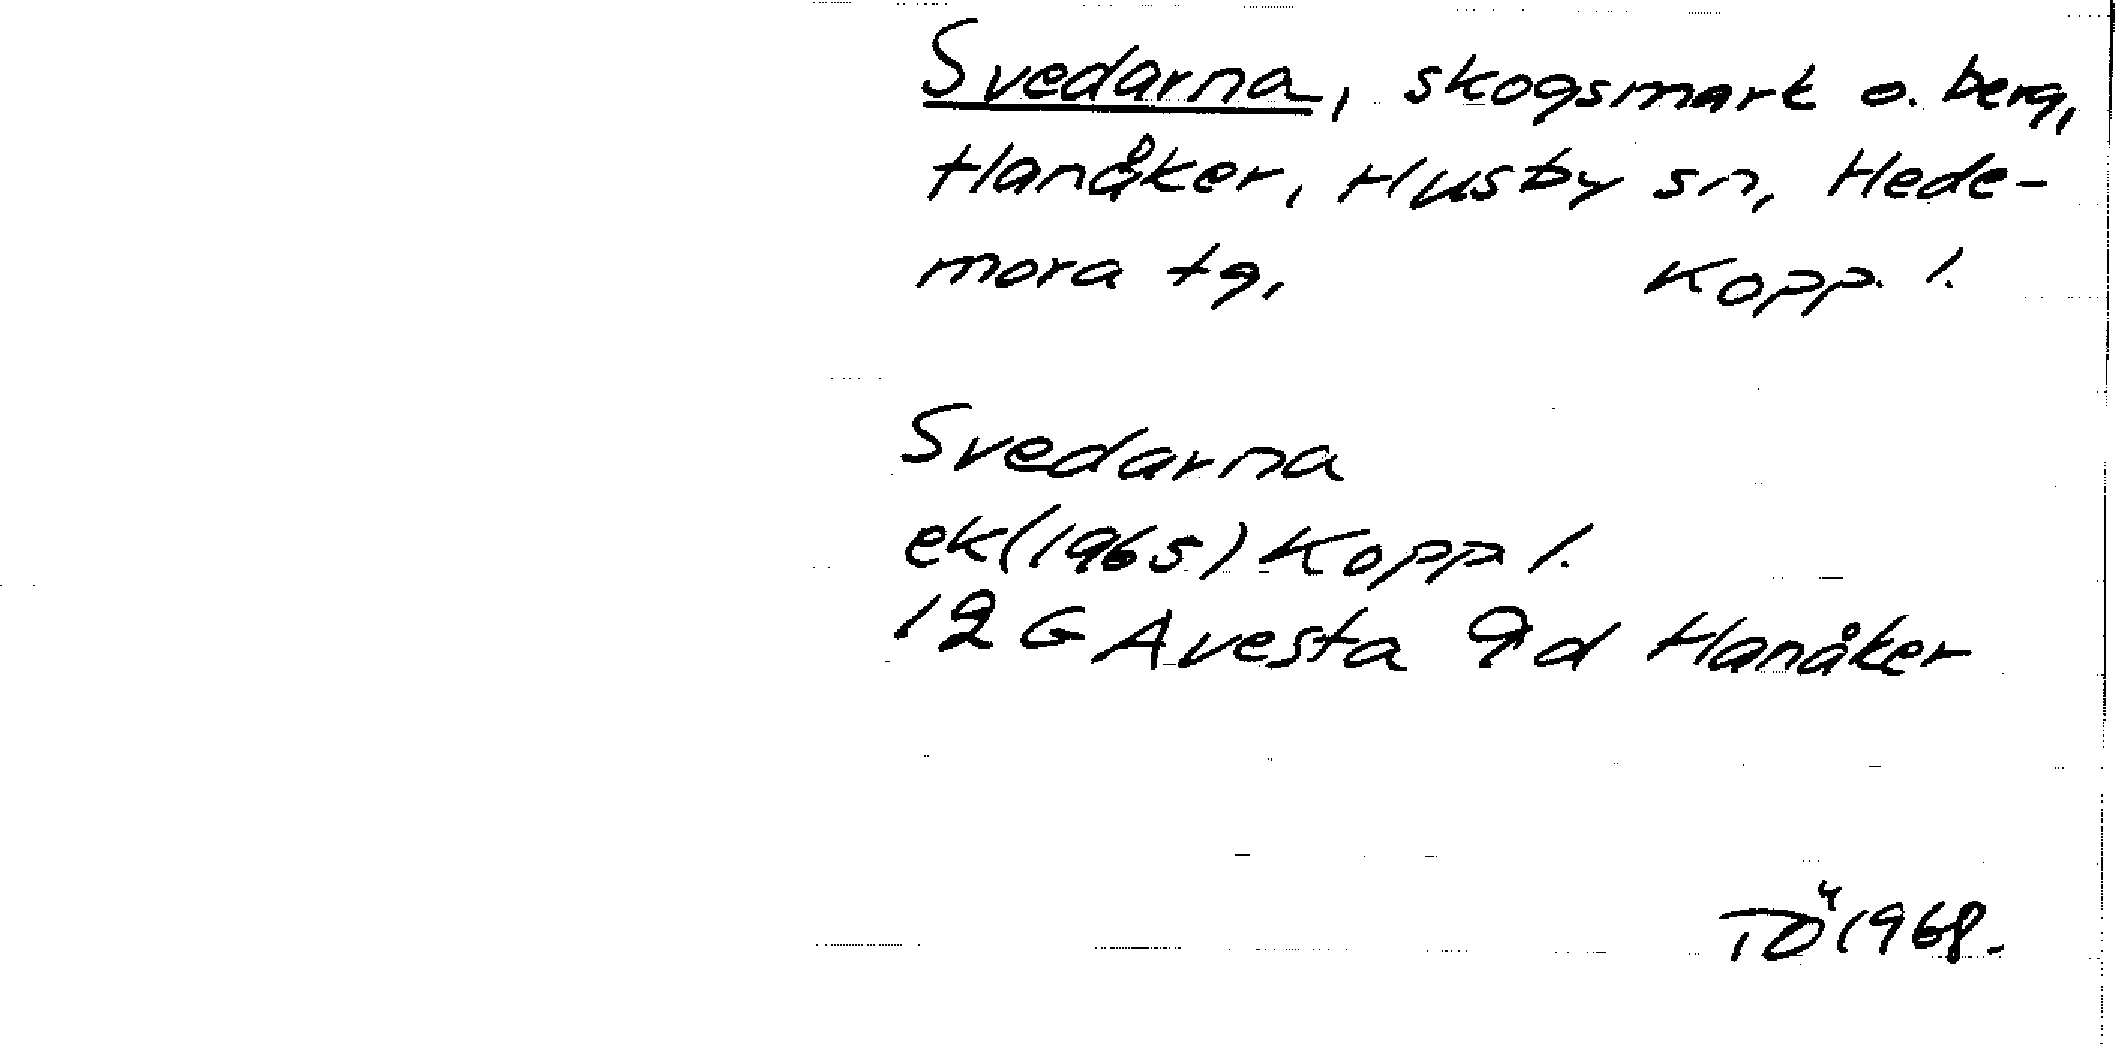 Svedarna, skogsmark o. berg,
Hanåker, Husby sn, Hede-
mora tg, Kopp. l.
Svedarna
ek (1965) Kopp l.
12 G Avesta 9 d Hanåker
TÖ 1968.